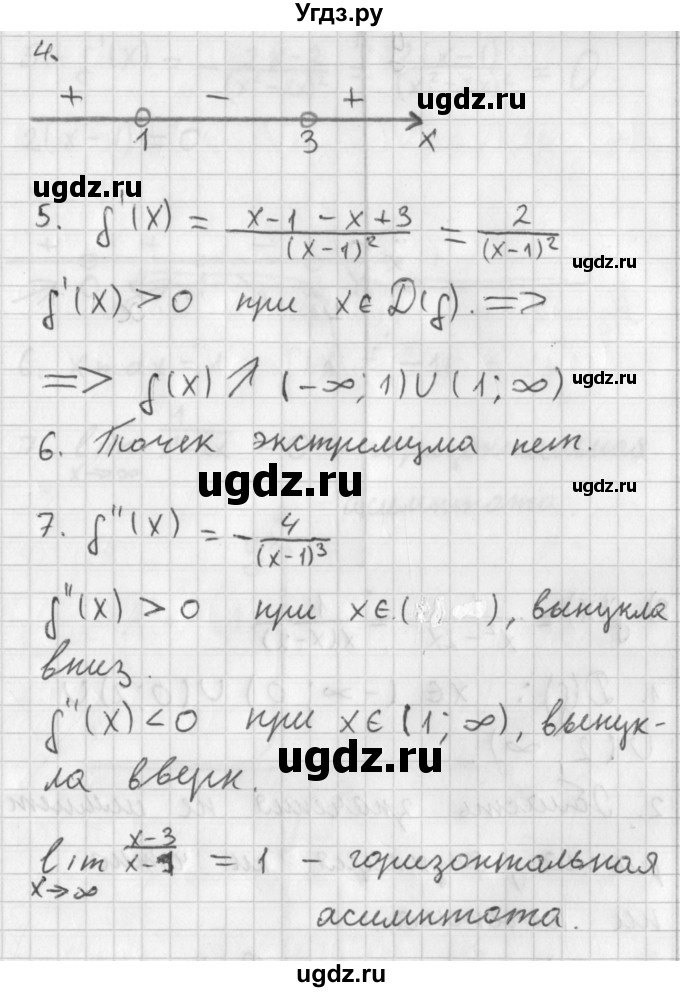 Угдз.ру
4.
+ - +
1 3 x
ugdz.ru
ugdz.ru
5. f'(x) = (x-1-x+3)/(x-1)² = 2/(x-1)²
ugdz.ru
f'(x) > 0 при x ∈ D(f). =>
=> f(x) ↗ (-∞; 1) ∪ (1; ∞)
6. Точек экстремума нет.
ugdz.ru
ugdz.ru
7. f''(x) = - 4/(x-1)³
f''(x) > 0 при x ∈ ( ), выпукла
вниз.
f''(x) < 0 при x ∈ (1; ∞), выпук-
ugdz.ru
ла вверх.
lim x→∞ (x-3)/(x-1) = 1 - горизонтальная
асимптота.
ugdz.ru